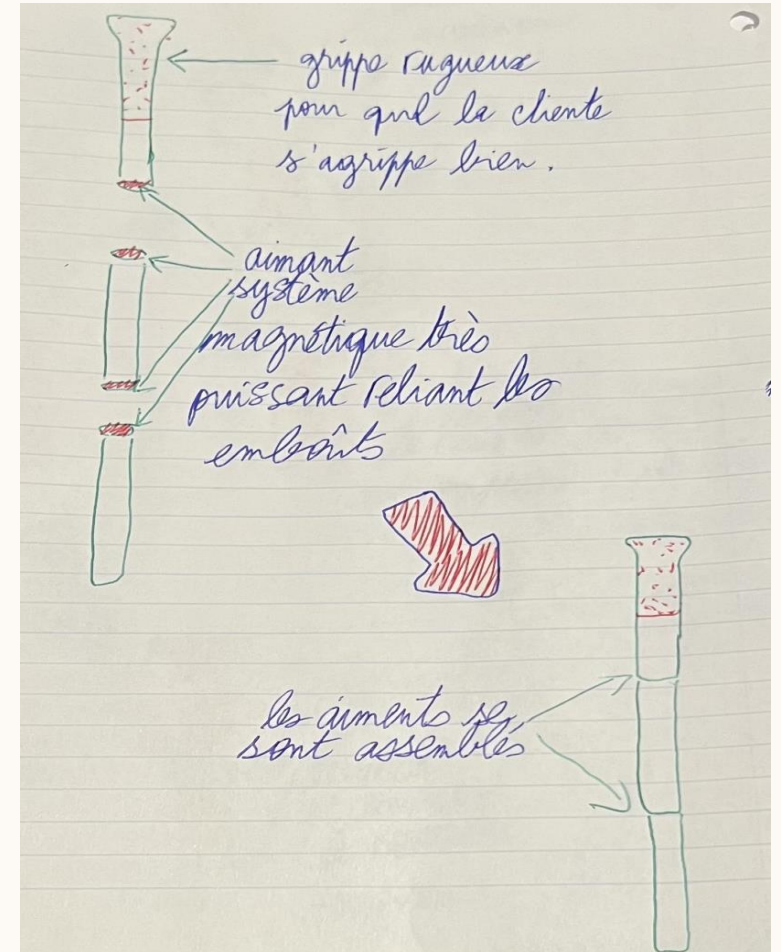 grippe rugueux
pour que la cliente
s'agrippe bien.
aimant
système
magnétique très
puissant reliant les
emboûts
les aiments se
sont assemblés